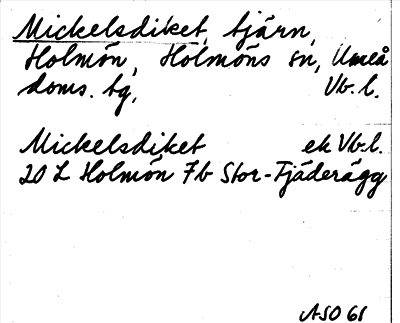 Mickelsdiket, tjärn,
Holmön, Holmöns sn, Umeå
doms. tg, Vb. l.
Mickelsdiket ek Vb.l.
20 L Holmön 7b Stor-Fjäderägg
ASO 61